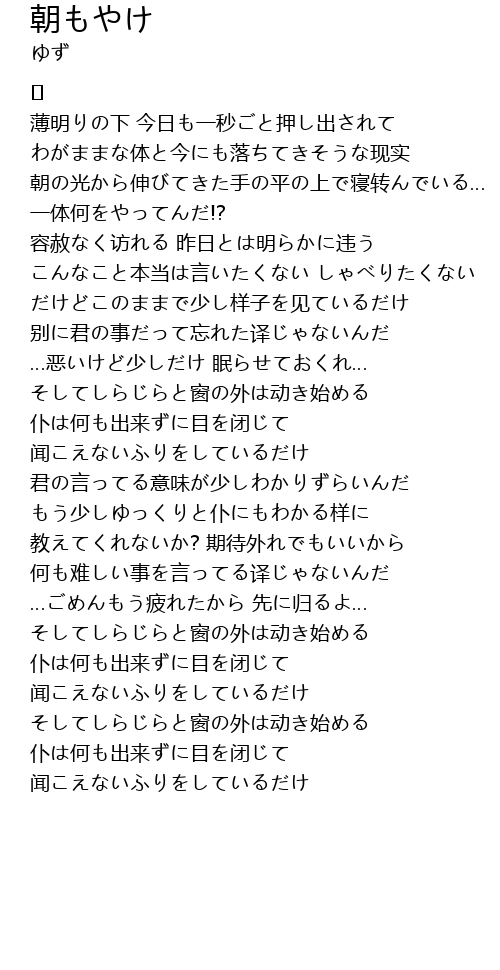 朝もやけ
ゆず
[]
薄明りの下 今日も一秒ごと押し出されて
わがままな体と今にも落ちてきそうな现实
朝の光から伸びてきた手の平の上で寝转んでいる...
一体何をやってんだ!?
容赦なく访れる 昨日とは明らかに违う
こんなこと本当は言いたくない しゃべりたくない
だけどこのままで少し样子を见ているだけ
别に君の事だって忘れた译じゃないんだ
...恶いけど少しだけ 眠らせておくれ...
そしてしらじらと窗の外は动き始める
仆は何も出来ずに目を闭じて
闻こえないふりをしているだけ
君の言ってる意味が少しわかりずらいんだ
もう少しゆっくりと仆にもわかる样に
教えてくれないか? 期待外れでもいいから
何も难しい事を言ってる译じゃないんだ
...ごめんもう疲れたから 先に归るよ...
そしてしらじらと窗の外は动き始める
仆は何も出来ずに目を闭じて
闻こえないふりをしているだけ
そしてしらじらと窗の外は动き始める
仆は何も出来ずに目を闭じて
闻こえないふりをしているだけ